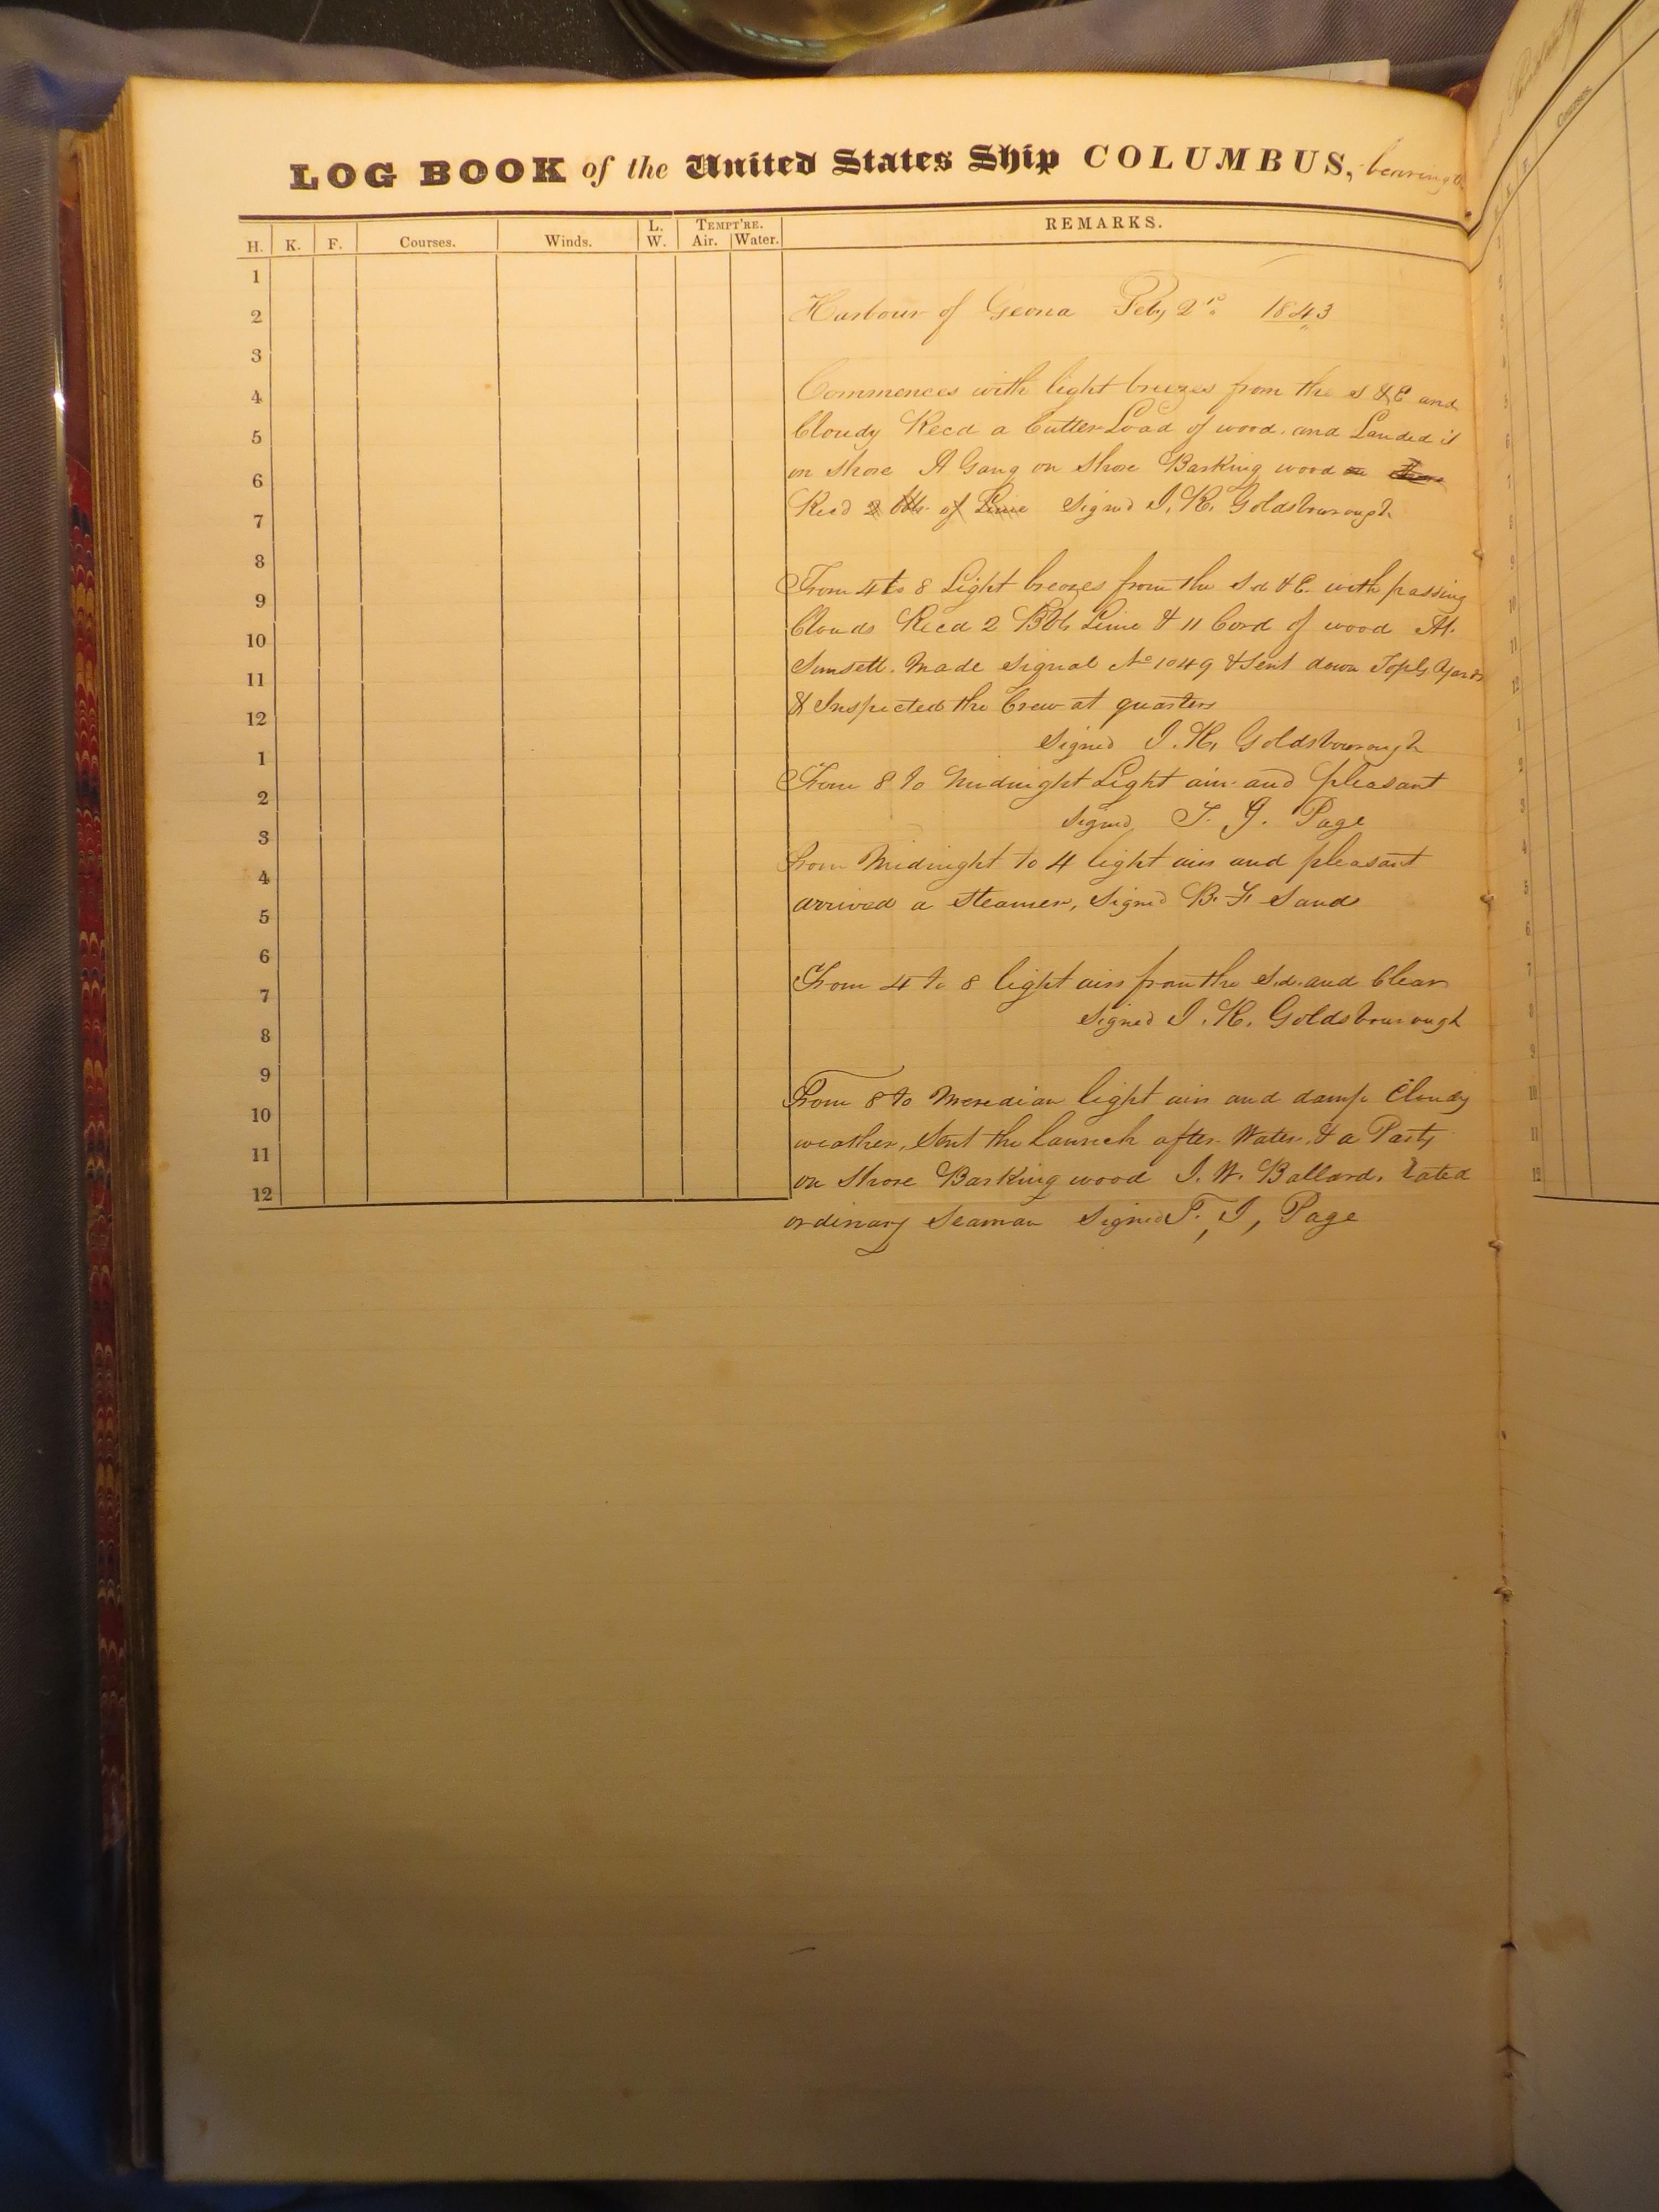 LOG BOOK of the United States Ship COLUMBUS, bearing
H. K. F. Courses. Winds. L. W. TEMPT'RE. Air. Water. REMARKS.
1
2 Harbour of Geona Feby 2nd 1843
3
4 Commences with light breezes from the S & E and
5 Cloudy Recd a Cutter Load of wood. and Landed it
6 on Shore A Gang on Shore Barking wood on Shore
7 Recd 2 bbls of Lime Signed J. R. Goldsbourough
8
9 From 4 to 8 Light breezes from the Sd & E. with passing
10 Clouds Recd 2 Bbls Lime & 11 Cord of wood At.
11 Sunsett. Made Signal No 1049 & Sent down Topgt Yards
12 & Inspected the Crew at quarters
1 Signed J. R. Goldsbourough
2 From 8 to Midnight Light airs and pleasant
3 Signed T. J. Page
4 From Midnight to 4 light airs and pleasant
5 arrived a Steamer, Signed B. F Sands
6
7 From 4 to 8 light airs from the Sd. and Clear
8 Signed J. R. Goldsbourough
9
10 From 8 to Meredian light airs and damp Cloudy
11 weather, Sent the Launch after Water, & a Party
12 on Shore Barking wood J. W. Ballard. rated
ordinary Seaman Signed T. J, Page
Courses.